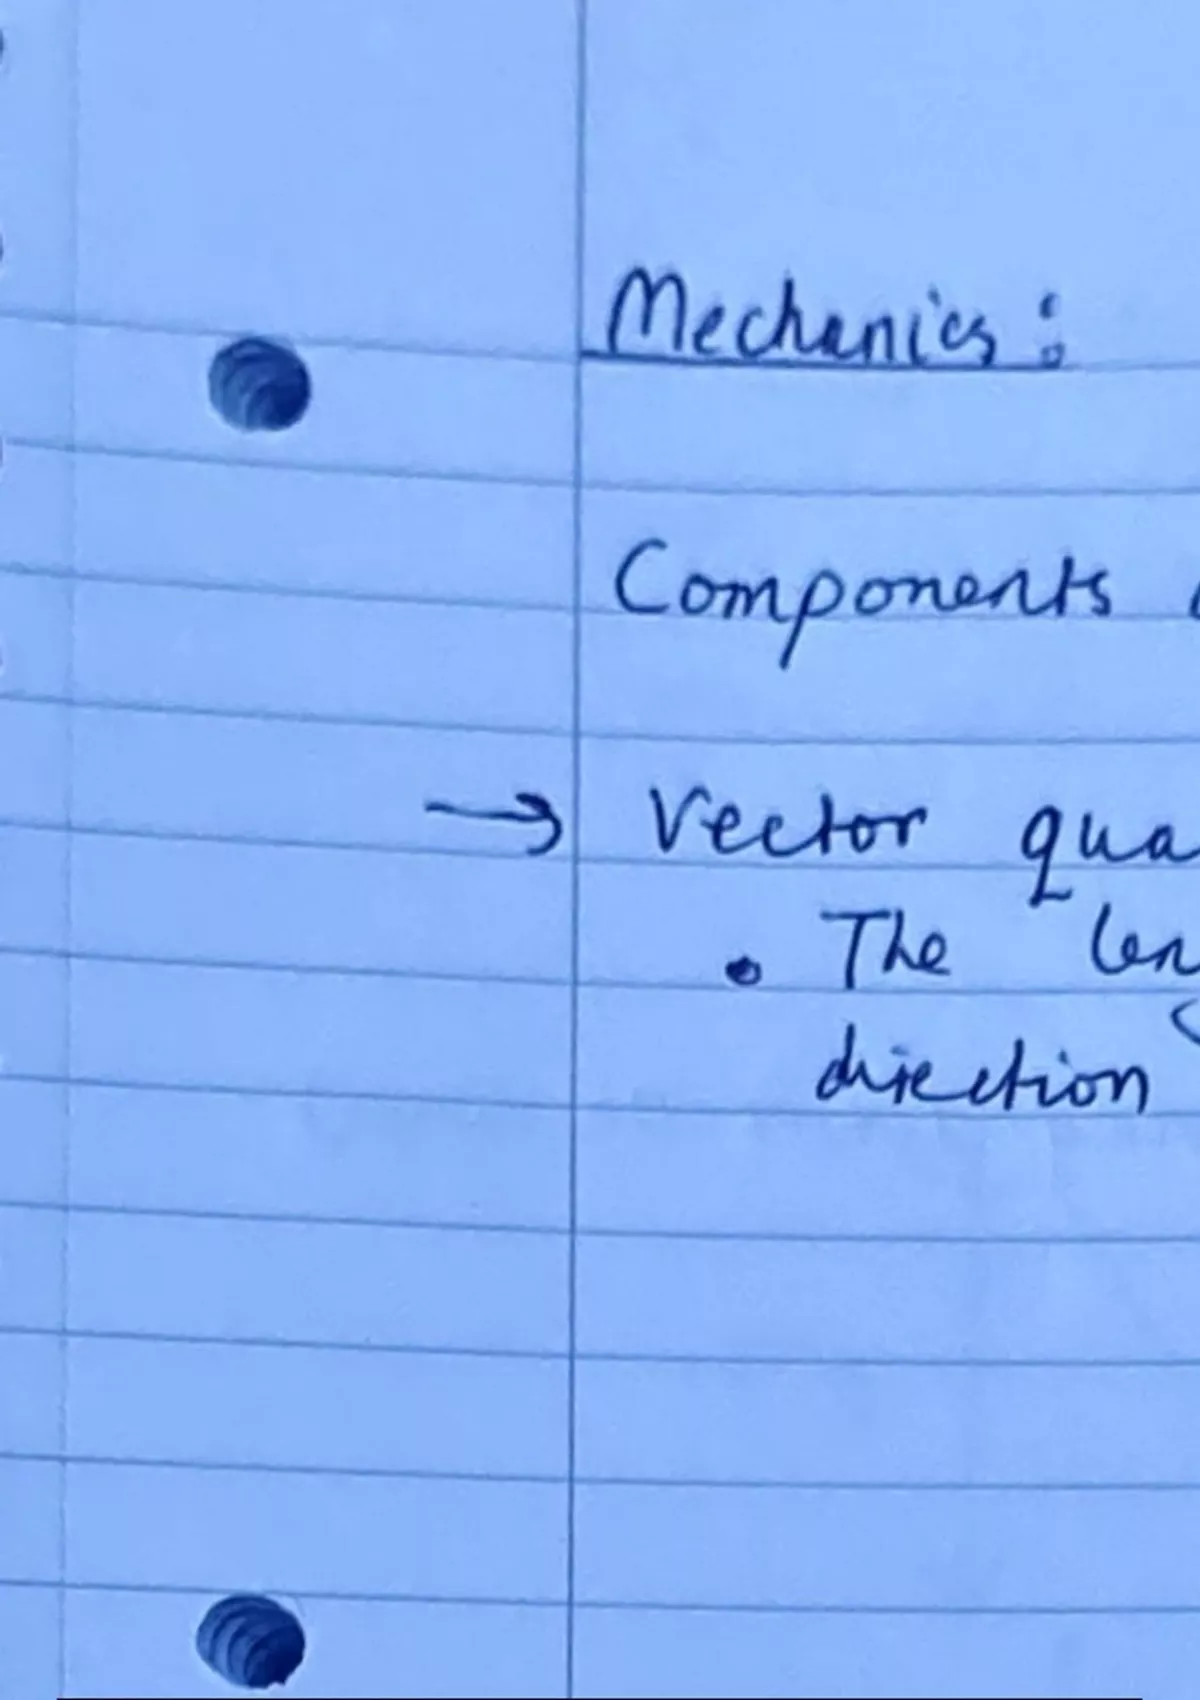 Mechanics:
Components
→ Vector qua
• The len
direction